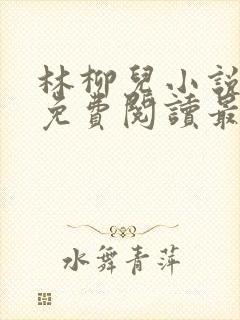 林柳兒小說
免費閱讀最
水舞青萍